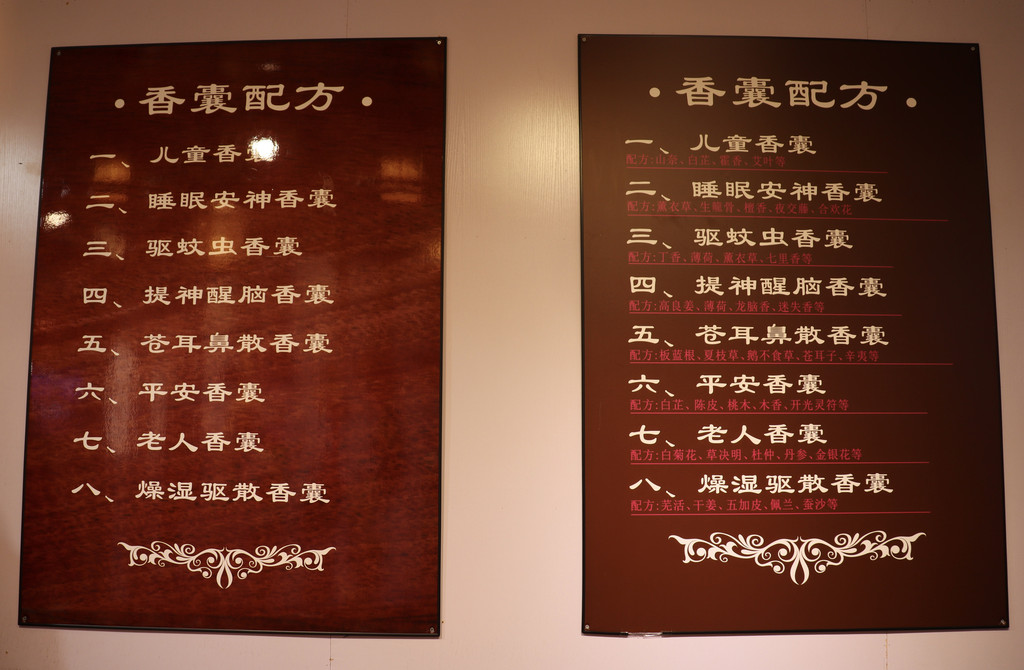 ·香囊配方·
一、儿童香囊
二、睡眠安神香囊
三、驱蚊虫香囊
四、提神醒脑香囊
五、苍耳鼻散香囊
六、平安香囊
七、老人香囊
八、燥湿驱散香囊
·香囊配方·
一、儿童香囊
配方:山奈、白芷、藿香、艾叶等
二、睡眠安神香囊
配方:薰衣草、生龍骨、檀香、夜交藤、合欢花
三、驱蚊虫香囊
配方:丁香、薄荷、薰衣草、七里香等
四、提神醒脑香囊
配方:高良姜、薄荷、龙脑香、迷失香等
五、苍耳鼻散香囊
配方:板蓝根、夏枝草、鹅不食草、苍耳子、辛夷等
六、平安香囊
配方:白芷、陈皮、桃木、木香、开光灵符等
七、老人香囊
配方:白菊花、草决明、杜仲、丹参、金银花等
八、燥湿驱散香囊
配方:芜活、干姜、五加皮、佩兰、蚕沙等